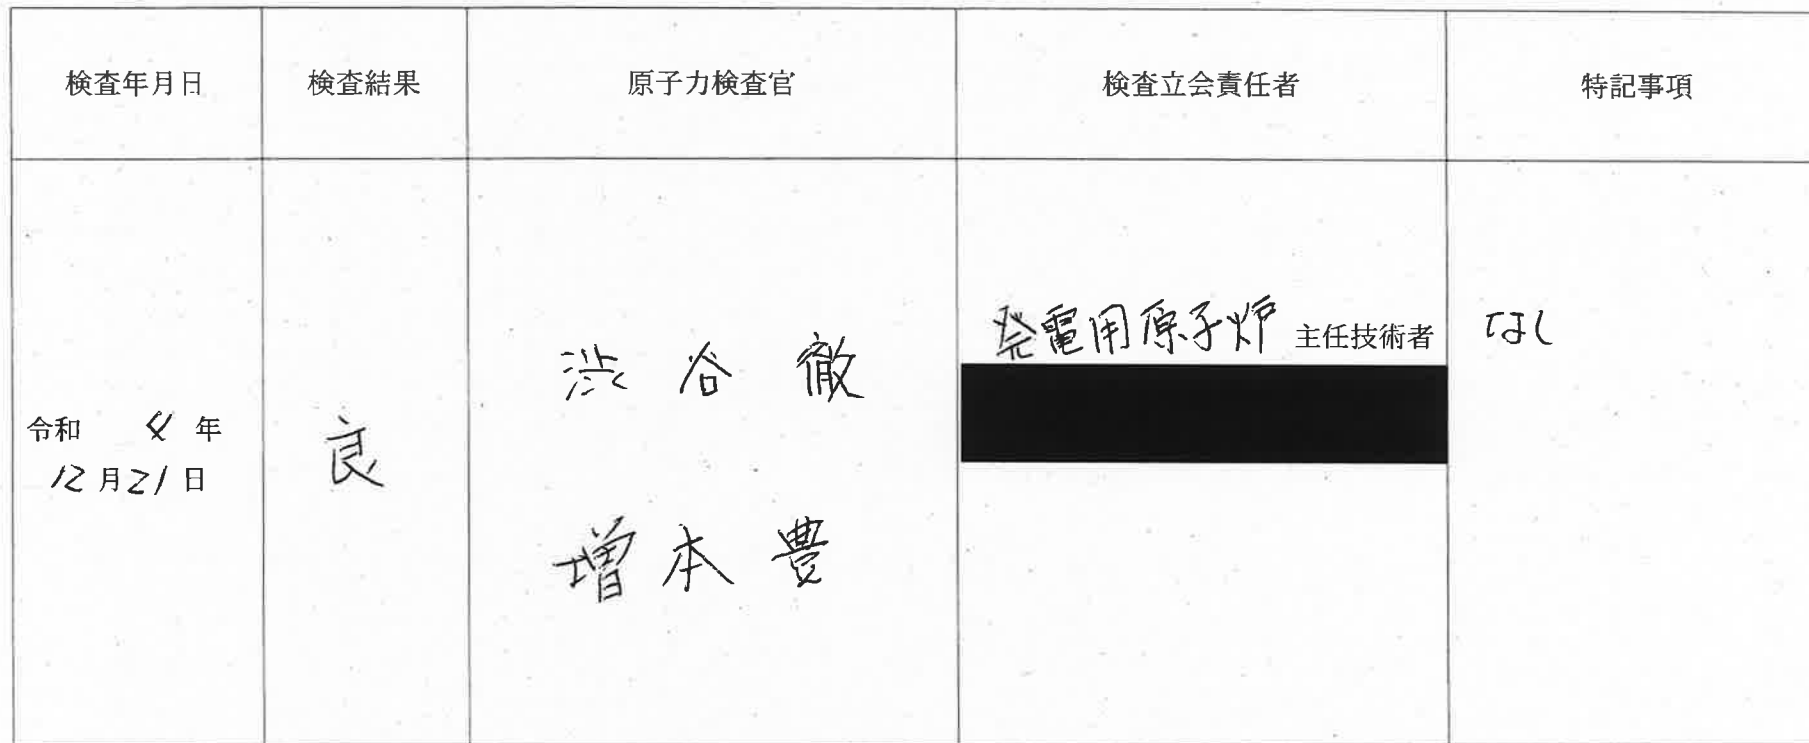 検査年月日
検査結果
原子力検査官
検査立会責任者
特記事項
令和 4 年
12月21日
良
渋谷 徹
増本 豊
発電用原子炉 主任技術者
なし